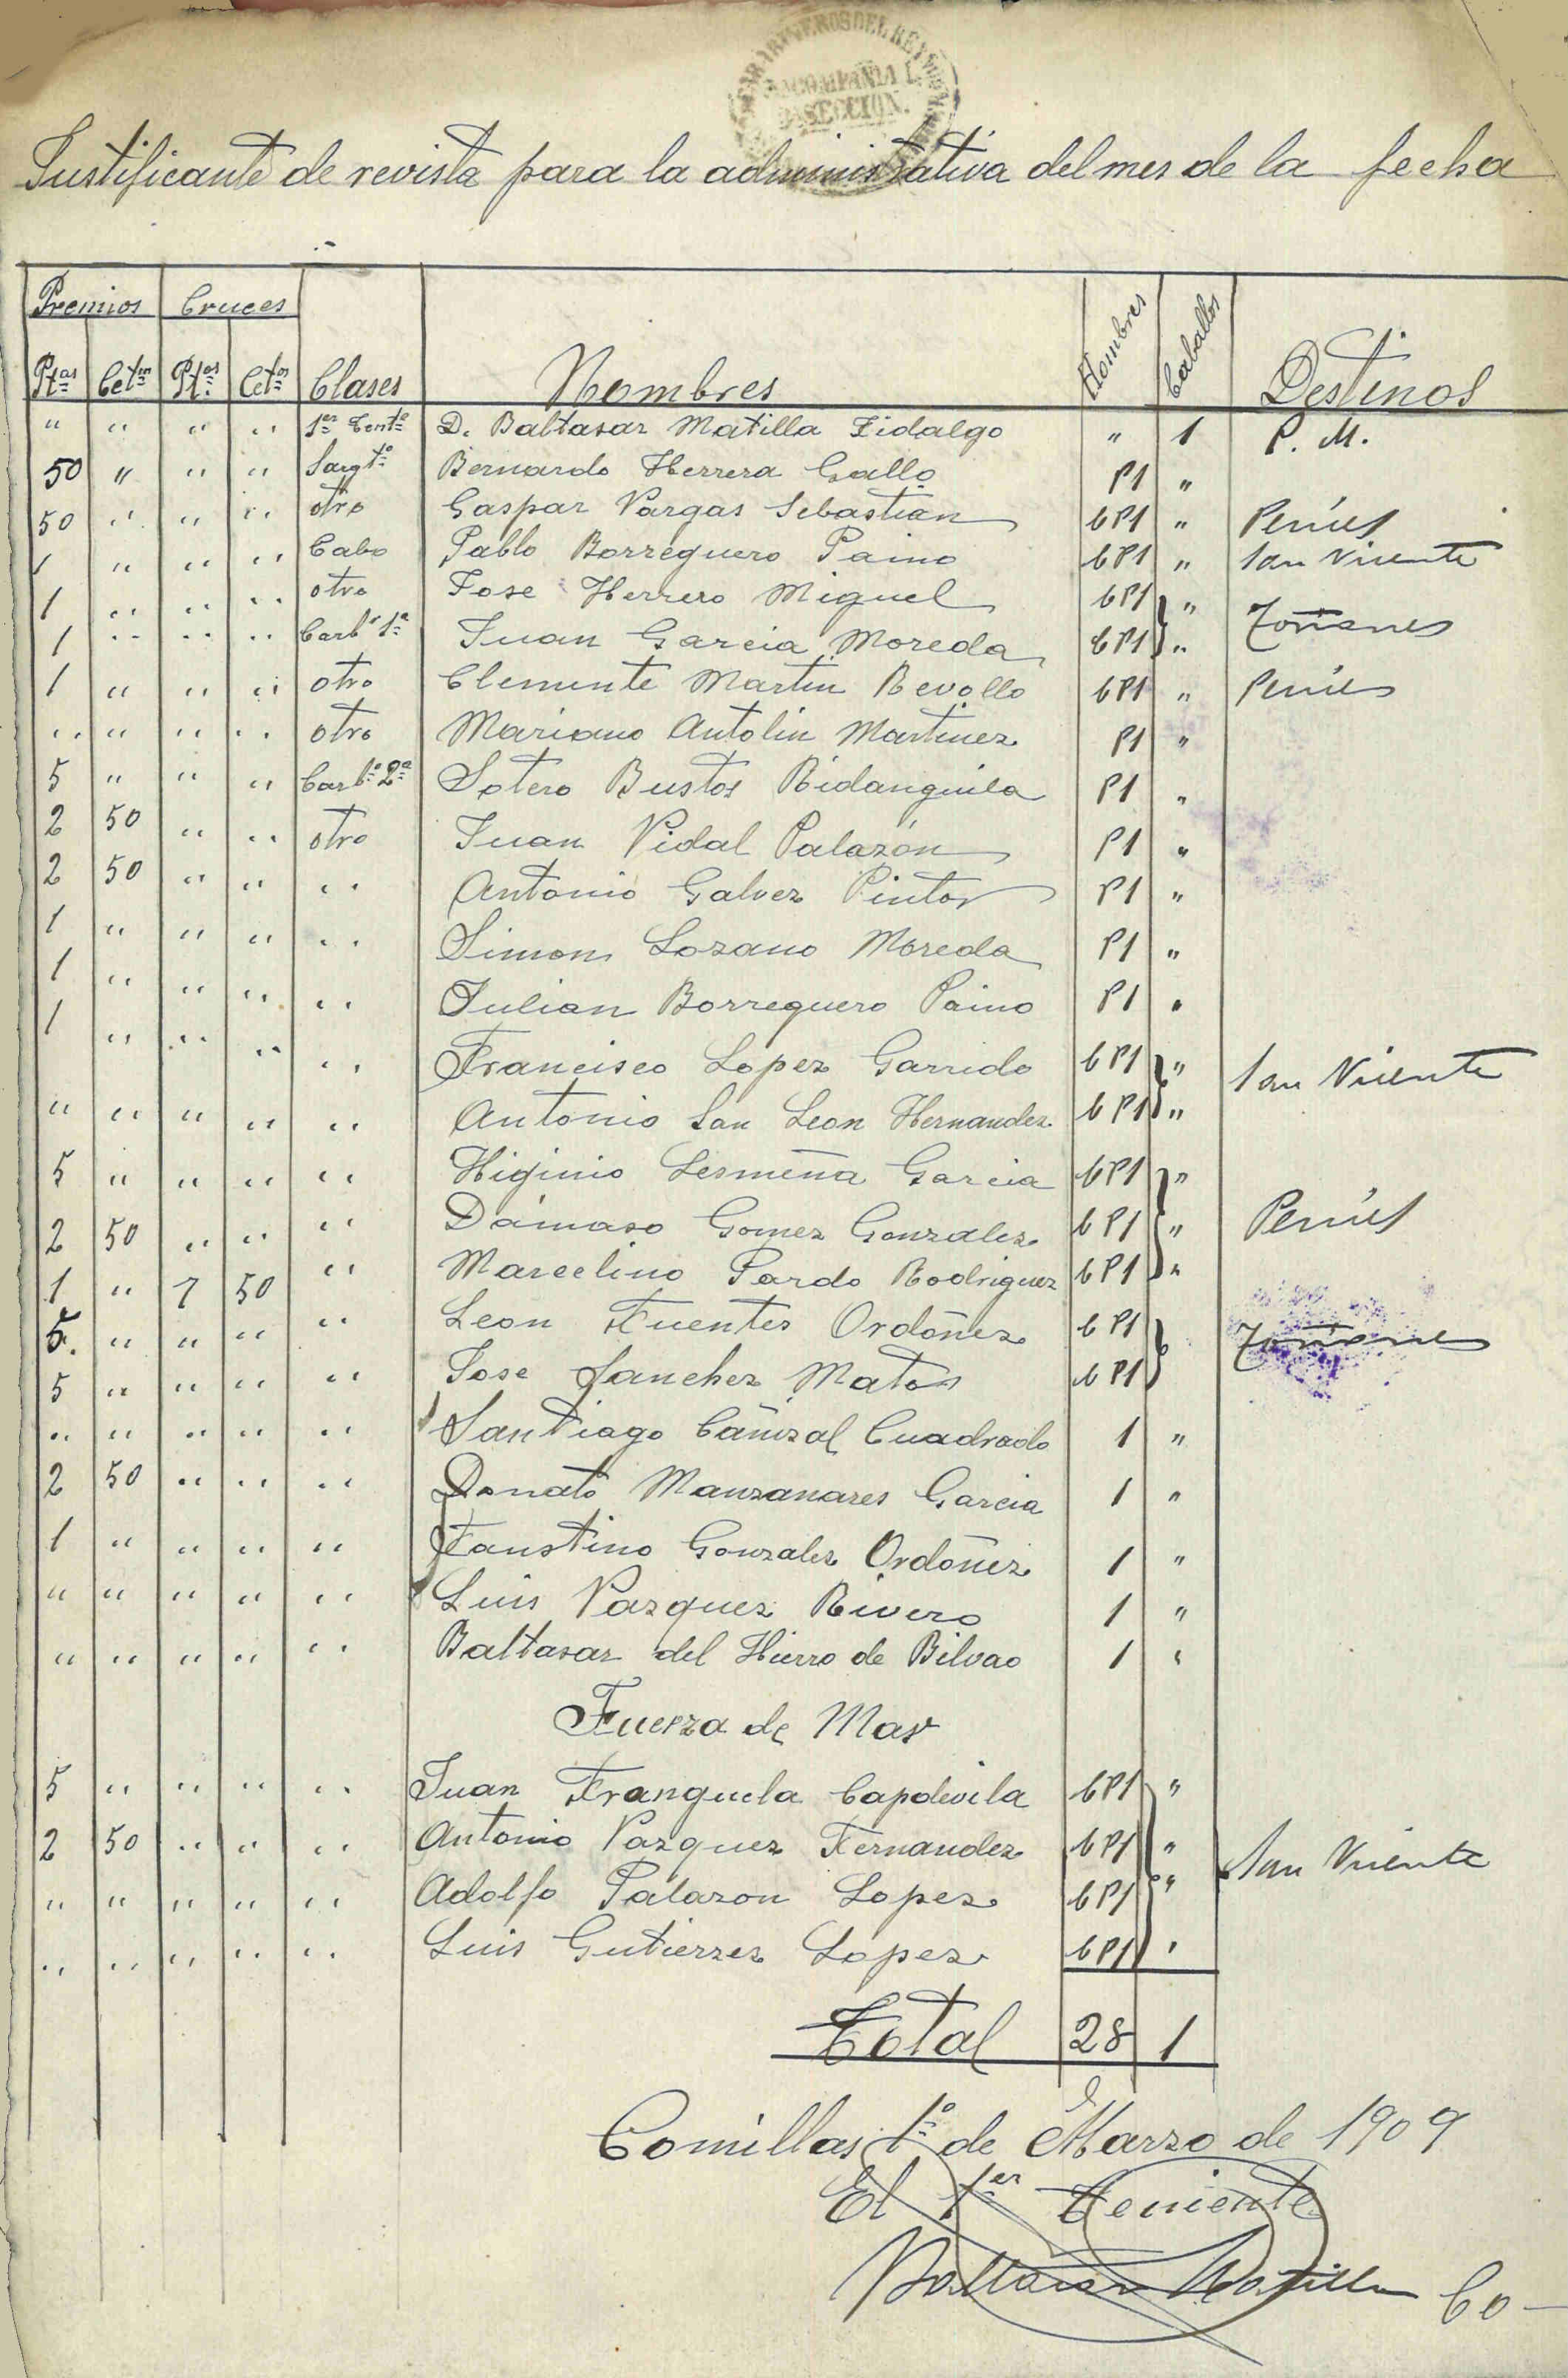 CARABINEROS DEL REYNO
COMPAÑIA
SECCION.
Justificante de revista para la administrativa del mes de la fecha
Premios Cruces
Ptas Cetms Ptas Cetms Clases Nombres Hombres Caballos Destinos
" " " " 1er Tente D. Baltasar Matilla Fidalgo " 1 P. M.
50 " " " Sargto Bernardo Herrera Gallo P1 "
50 " " " otro Gaspar Vargas Sebastian CP1 " Peñies
1 " " " Cabo Pablo Borreguero Paino CP1 " San Vicente
1 " " " otro Jose Herrero Miguel CP1 "
1 " " " Carbo 1a Juan Garcia Moreda CP1 } " Toñanes
1 " " " otro Clemente Martin Revollo CP1 " Peñies
" " " " otro Mariano Antolin Martinez P1 "
5 " " " Carbo 2a Sotero Bustos Ridanguila P1 "
2 50 " " otro Juan Vidal Palazón P1 "
2 50 " " " Antonio Galvez Pintor P1 "
1 " " " " Simon Lozano Moreda P1 "
1 " " " " Julian Borreguero Paino P1 "
1 " " " " Francisco Lopez Garrido CP1 } " San Vicente
" " " " " Antonio San Leon Hernandez CP1 "
5 " " " " Higinio Lesmeña Garcia CP1 "
2 50 " " " Dámaso Gomez Gonzalez CP1 } " Peñies
1 " 7 50 " Marcelino Pardo Rodriguez CP1 "
5. " " " " Leon Fuentes Ordoñez CP1 } Toñanes
5 " " " " Jose Sanchez Matos CP1
" " " " " Santiago Cañizal Cuadrado 1 "
2 50 " " " Donato Manzanares Garcia 1 "
1 " " " " Faustino Gonzalez Ordoñez 1 "
" " " " " Luis Vazquez Rivero 1 "
" " " " " Baltasar del Hierro de Bilvao 1 "
Fuerza de Mar
5 " " " " Juan Franquela Capdevila CP1 "
2 50 " " " Antonio Vazquez Fernandez CP1 } " San Vicente
" " " " " Adolfo Palazon Lopez CP1 "
" " " " " Luis Gutierrez Lopez CP1 "
Total 28 1
Comillas 1º de Marzo de 1909
El 1er Teniente
Baltasar Matilla
Co-